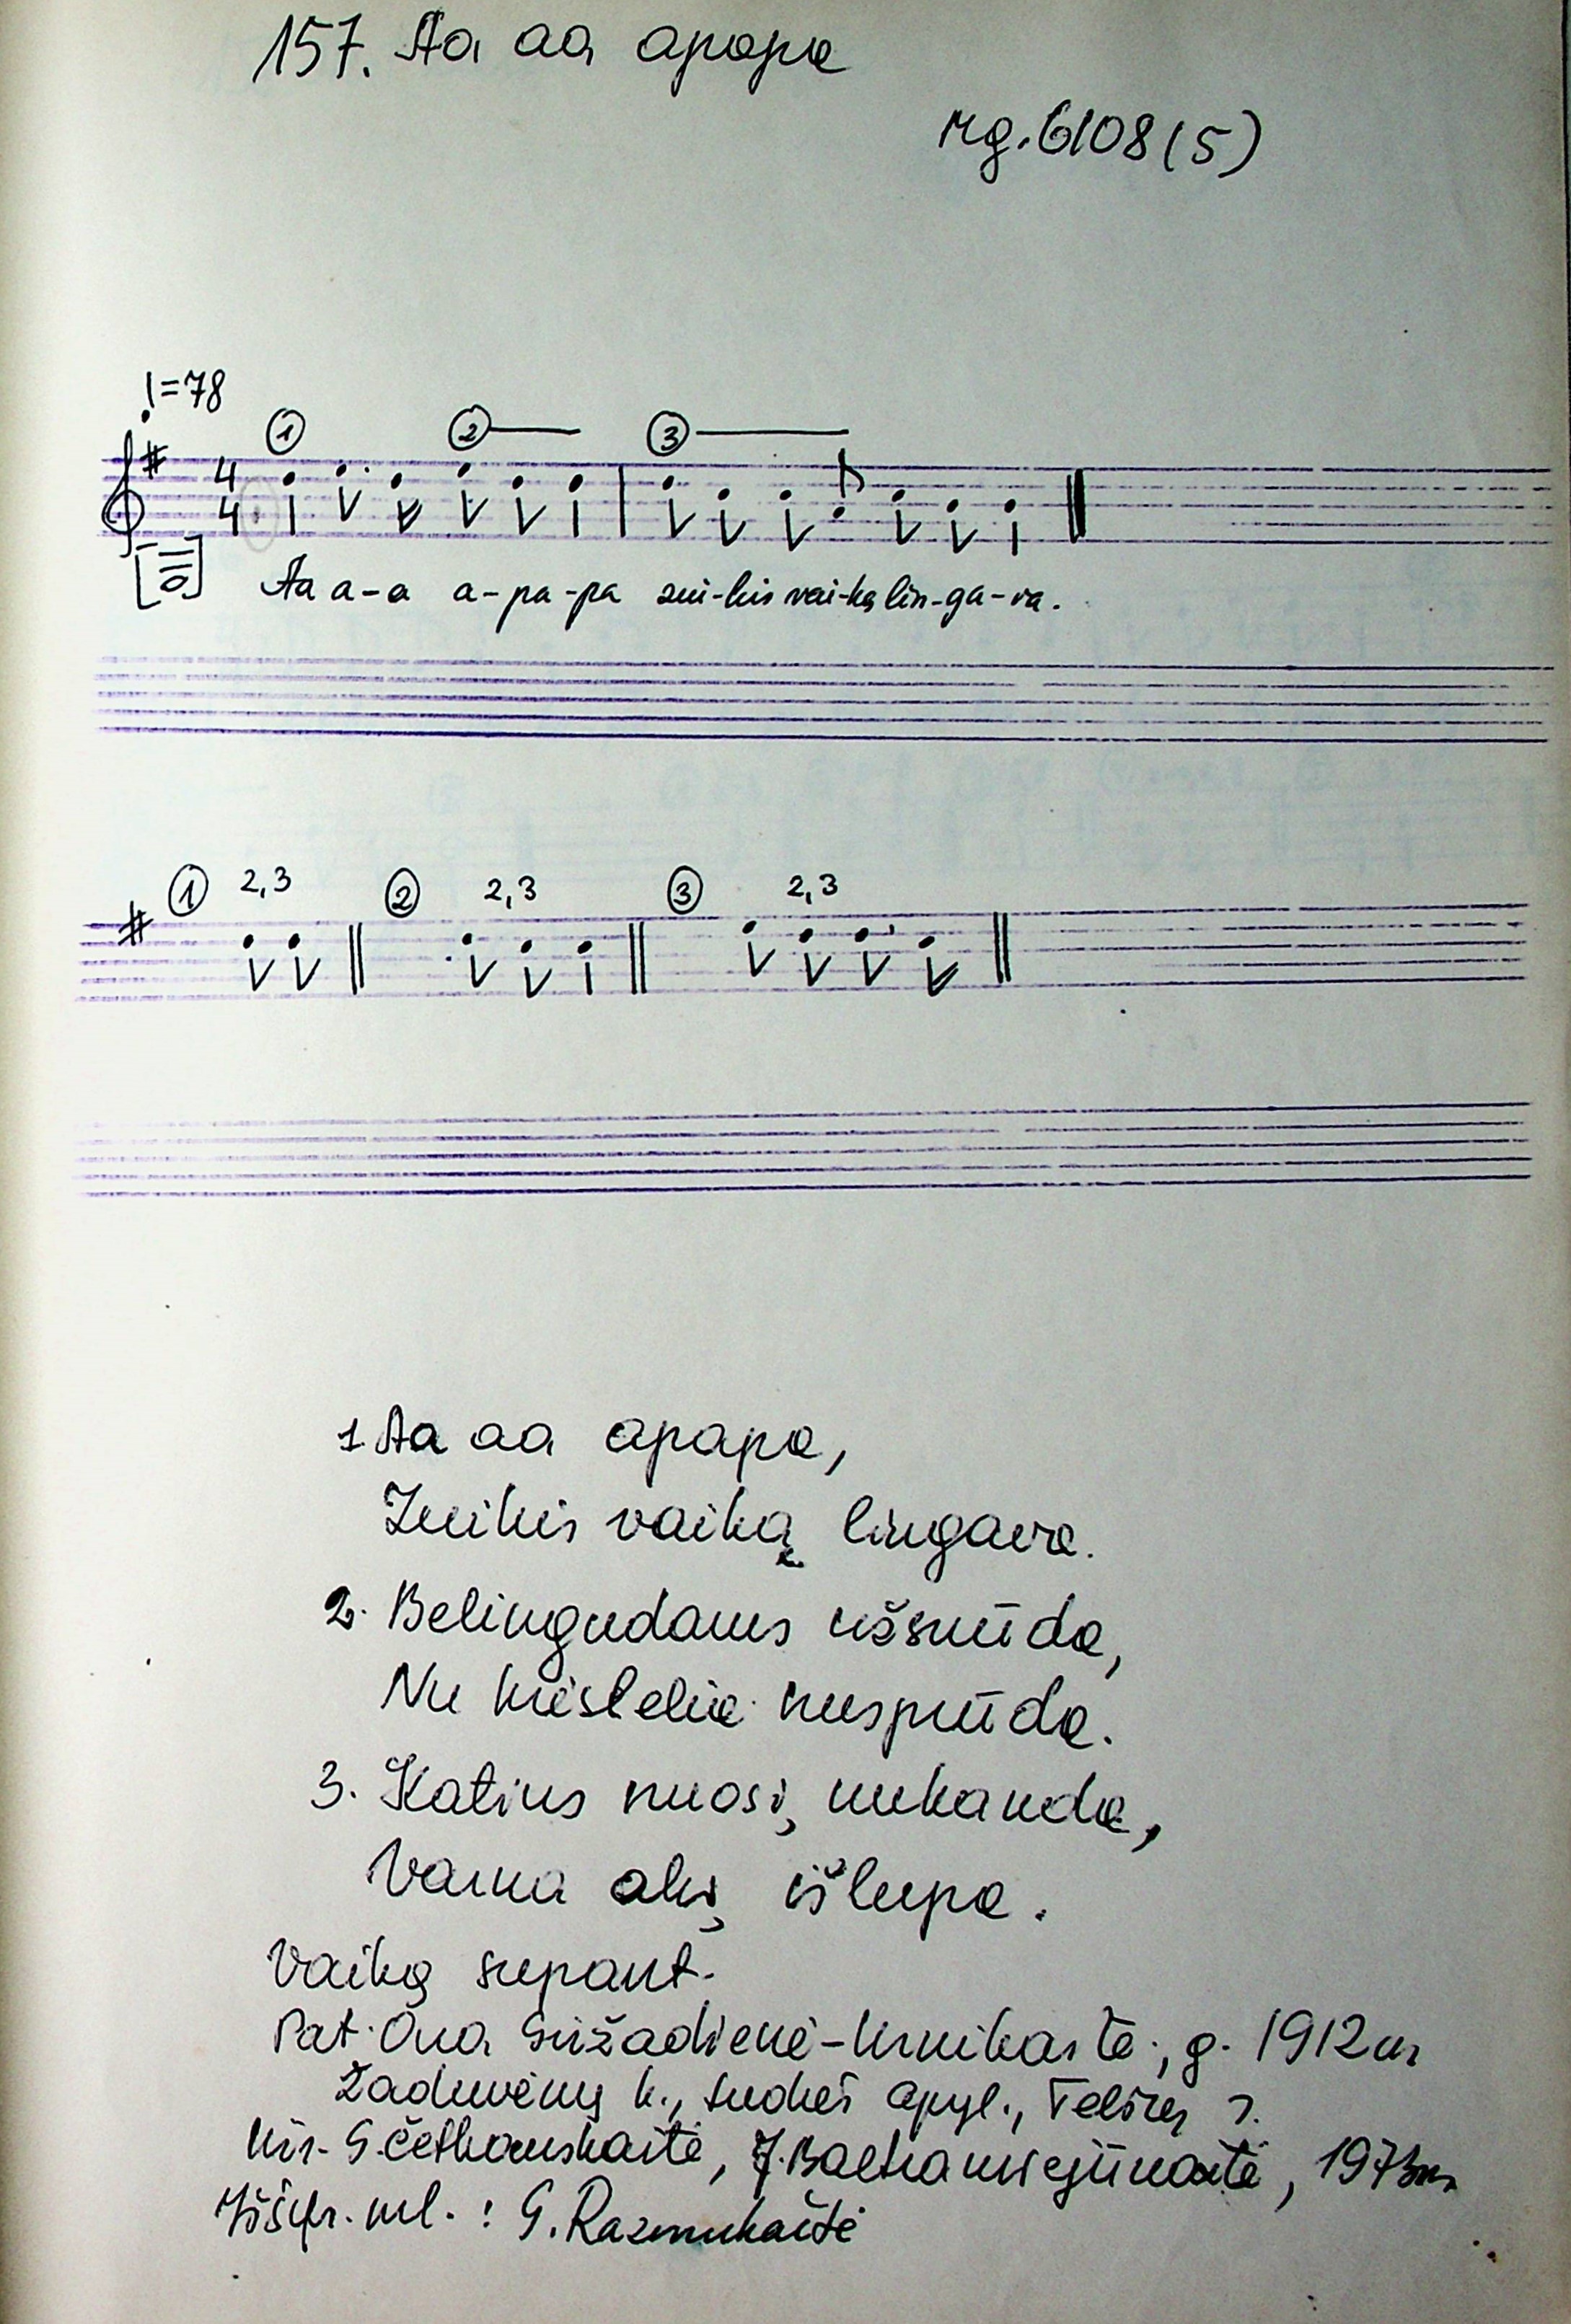 157. Aa aa apapa
rg. 6108(5)
♩=78
① ② ③
4
4
Aa a-a a-pa-pa zui-kis vai-ką lin-ga-va.
① 2,3 ② 2,3 ③ 2,3
1. Aa aa apapa,
Zuikis vaiką lingava.
2. Belingudams užsnūda,
Nu krėslelia nuspūda.
3. Katins nuosi, nukanda,
Varna aki, išlupa.
Vaiką supant.
Pat. Ona Srižadienė-, g. 1912 m
Žaduvėnų k., Luokės apyl., Telšių r.
Užr. G. Četkauskaitė, J. 1973 m.
Iššifr. mel.: G. Razmukaitė